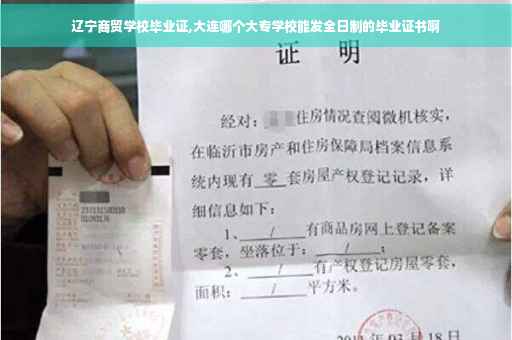 辽宁商贸学校毕业证,大连哪个大专学校能发全日制的毕业证书啊
证 明
经对：住房情况查阅微机核实，
在临沂市房产和住房保障局档案信息系
统内现有 零 套房屋产权登记记录，详
细信息如下：
1、 / 有商品房网上登记备案
零套，坐落位于： / ；
2、 / 有产权登记房屋零套，
面积： / 平方米。